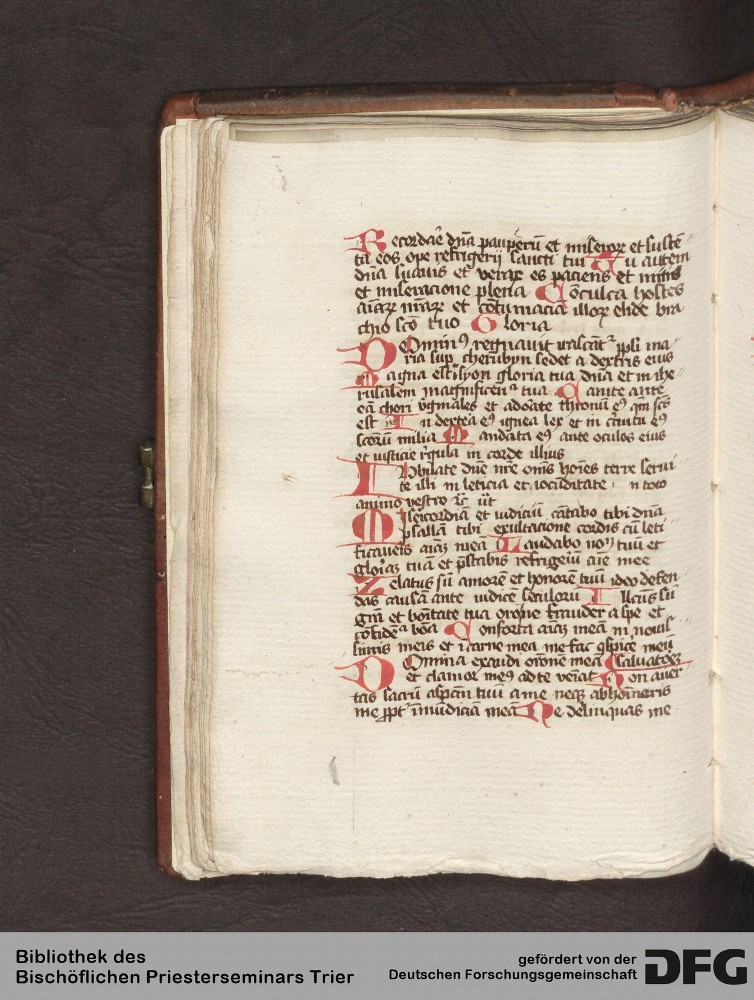 Recordar̄ dn̄a paup̱erū et miseroꝝ et sustē
ta eos ope refrigerij sancti tui Tu autem
dn̄a suauis et verax es paciens et mitis
et miseracione plena Cōculca hostes
aīaꝝ nr̄aꝝ et cōtumaciā illoꝝ elide bra
chio scō tuo Gloria
Dominꝰ regnauit irascāt᷑ pp̄li ma
ria suꝑ cherubyn sedet a dextris eius
Magna est ī syon gloria tua dn̄a et in ihe
rusalem magnificenͣ tua Cantate ante
eā chori v̓gīnales et adorate thronū eꝰ qm̄ scs̄
est In dextea eꝰ ignea lex et in c̓cuitu eꝰ
sctorū milia Mandata eꝰ ante oculos eius
et iusticie r̓gula in corde illius
Iubilate dn̄e nr̄e om̄s hoīes terre serui
te illi in leticia et iocūditate In toto
animo vestro
Misericordiā et iudiciū cātabo tibi dn̄a
psallā tibi exultacione cordis cū leti
ficaueis aīaꝫ meā Laudabo noꝫ tuū et
gloriaꝫ tuā et p̄stabis refrigeiū aīe mee
Zelatus sū amorē et honorē tuū ideo defen
das causā ante iudicē seculorū Illectus sū
gr̄a et boītate tua orōne frauder a spe et
cōfidēͣ bōa Conforta aīaꝫ meā in nouis
simis meis et ī carne mea me fac ꝯspicē meū
Domina exaudi orōnē meā saluatorē
et clamor meꝰ ad te veīat Non auer
tas sacrū aspc̄m tuū a me neqꝫ abhoīneris
me ꝓpt̓ īmūdiciā meā Ne delinquas me
Bibliothek des
Bischöflichen Priesterseminars Trier
gefördert von der
Deutschen Forschungsgemeinschaft
DFG